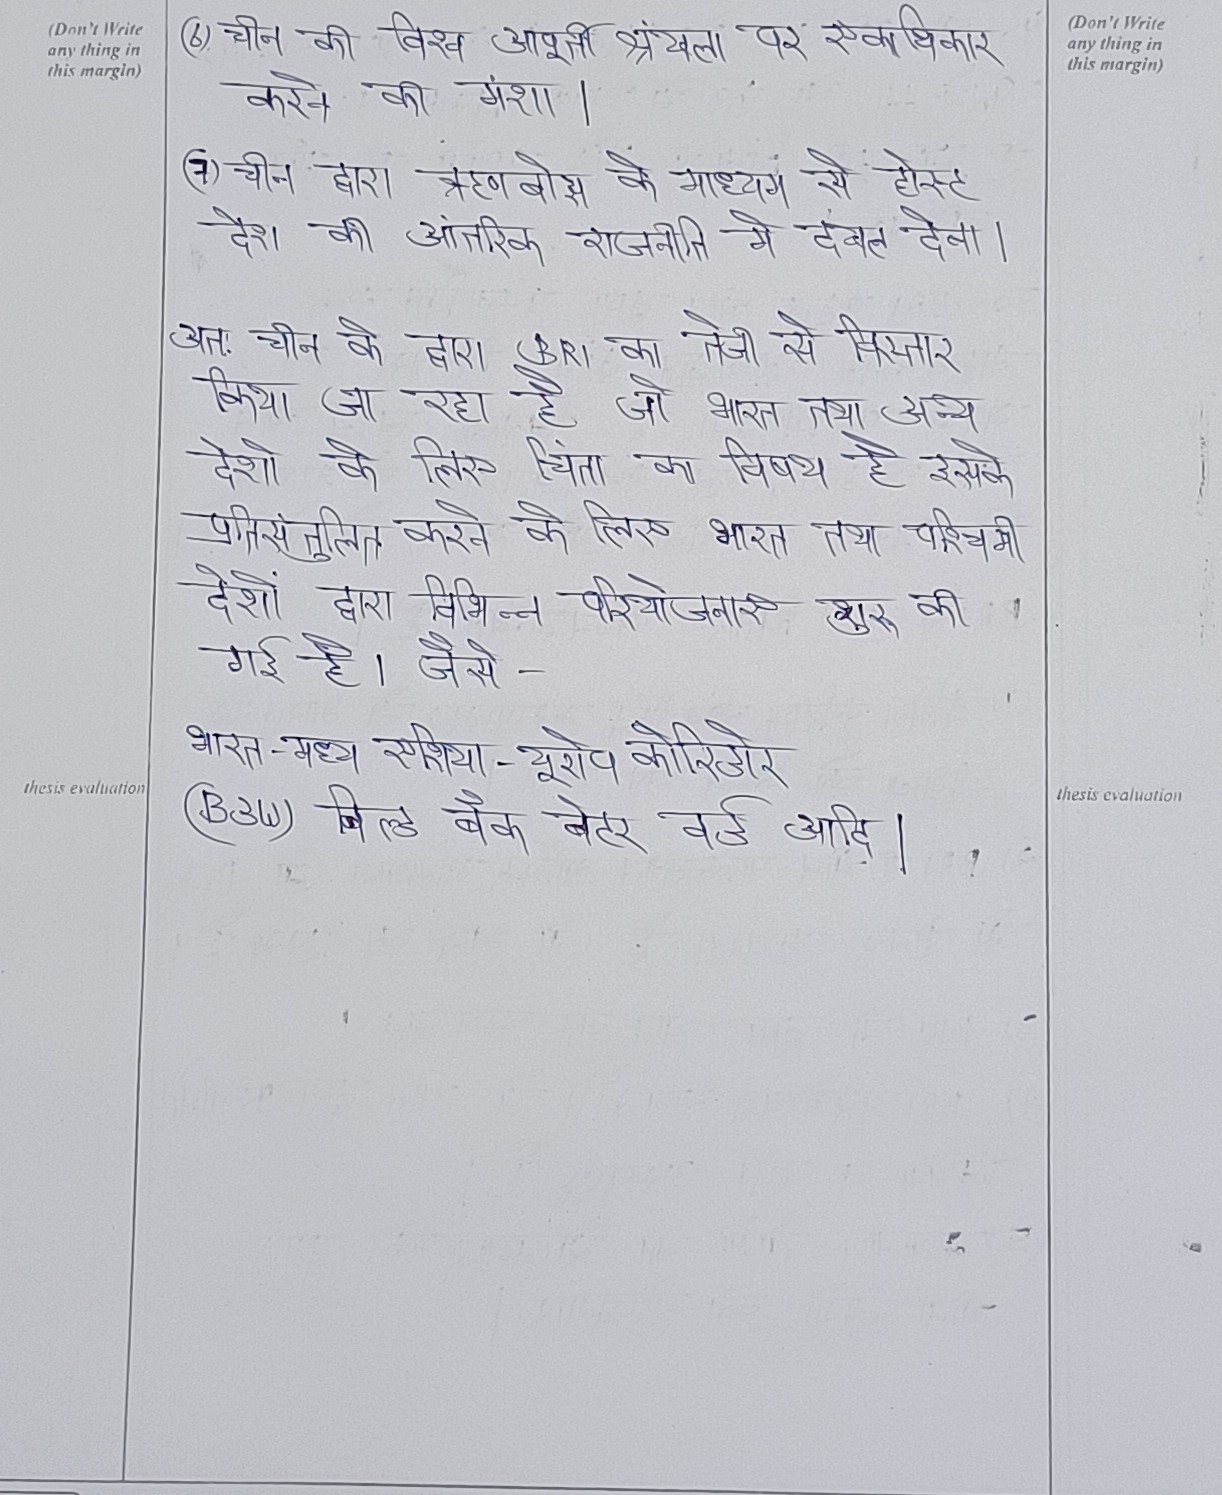 (Don't Write
any thing in
this margin)
(6) चीन की विश्व आपूर्ती श्रंखला पर एकाधिकार
करने की मंशा।
(7) चीन द्वारा ऋण बोझ के माध्यम से होस्ट
देश की आंतरिक राजनीति मे दखल देना।
अतः चीन के द्वारा BRI का तेजी से विस्तार
किया जा रहा है जो भारत तथा अन्य
देशो के लिए चिंता का विषय है इसके
प्रतिसंतुलित करने के लिए भारत तथा पश्चिमी
देशों द्वारा विभिन्न परियोजनाए शुरू की
गई है। जैसे -
भारत-मध्य एशिया-यूरोप कोरिडोर
(B3W) बिल्ड बैक बेटर वर्ड आदि।
(Don't Write
any thing in
this margin)
thesis evaluation
thesis evaluation